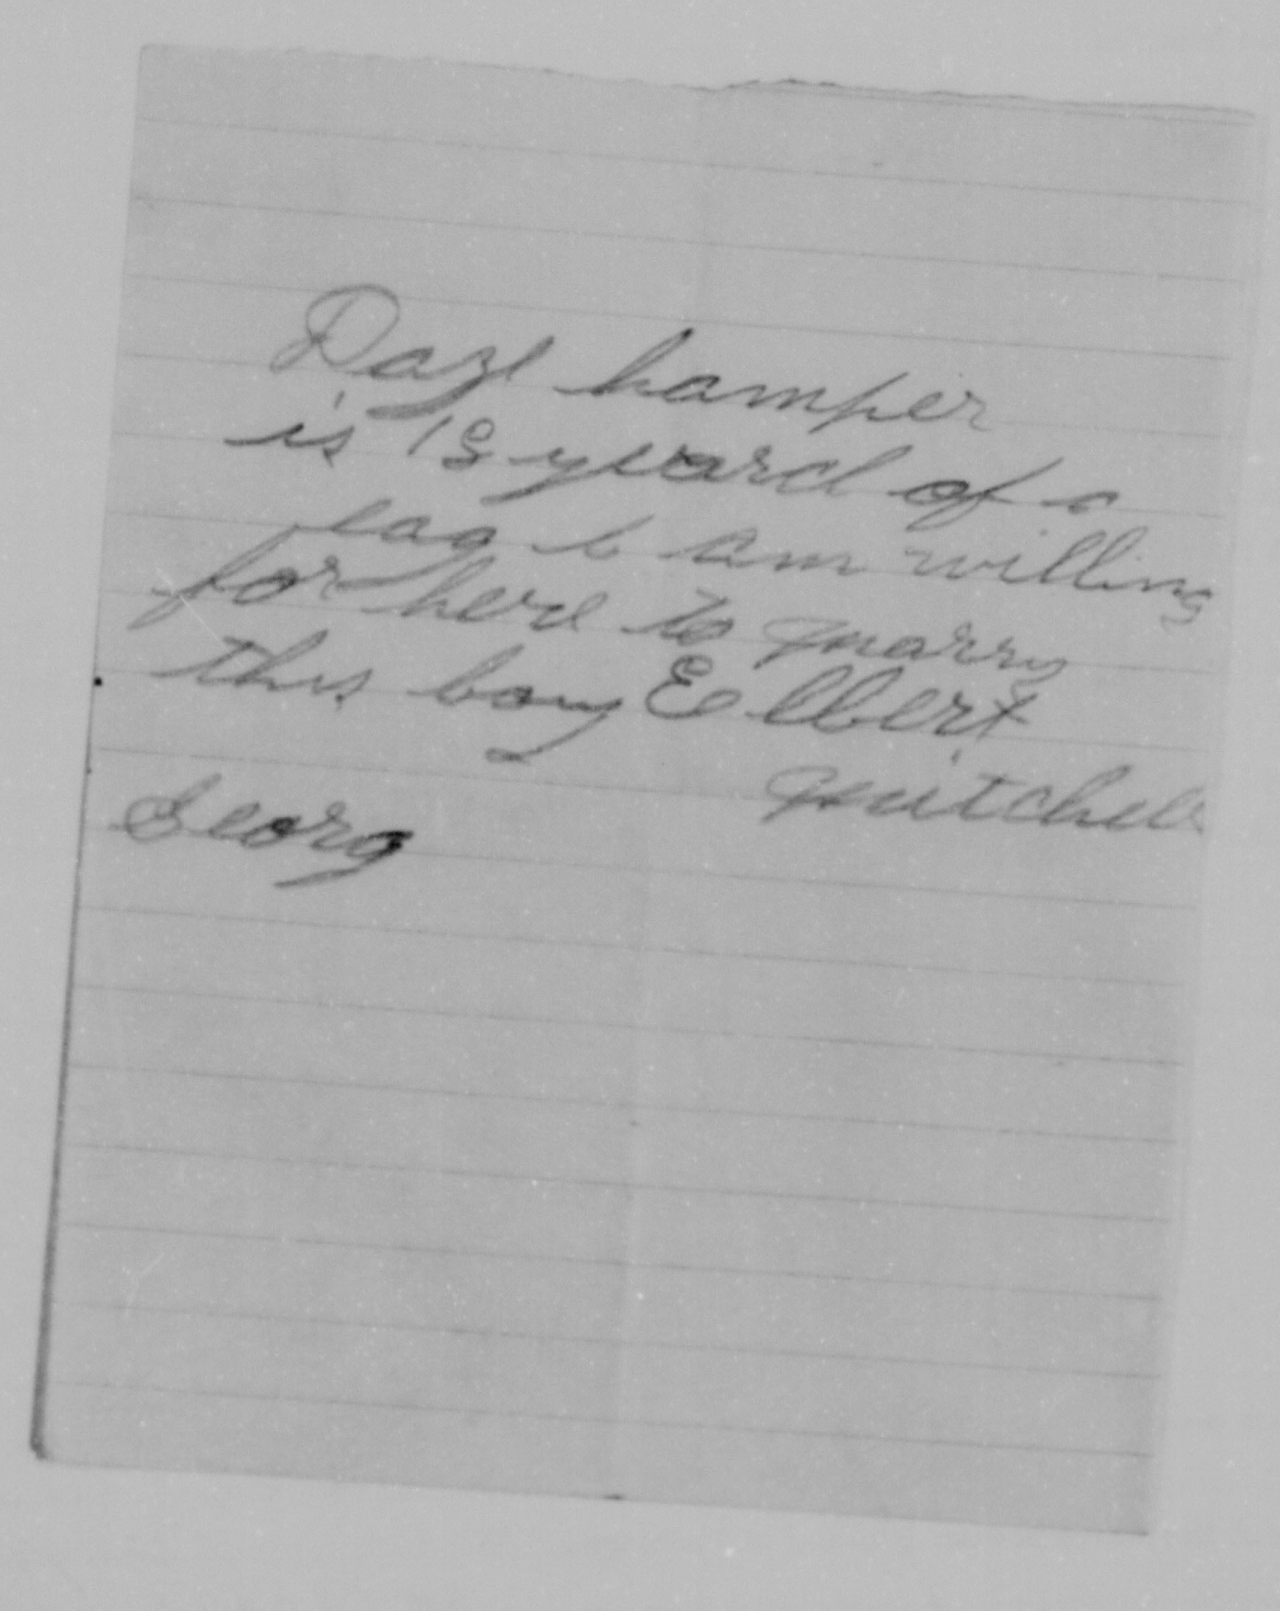 Daze hamper
is 18 yeard of a
eag i am willing
for here to marry
this boy Eelbert
mitchell
Georg